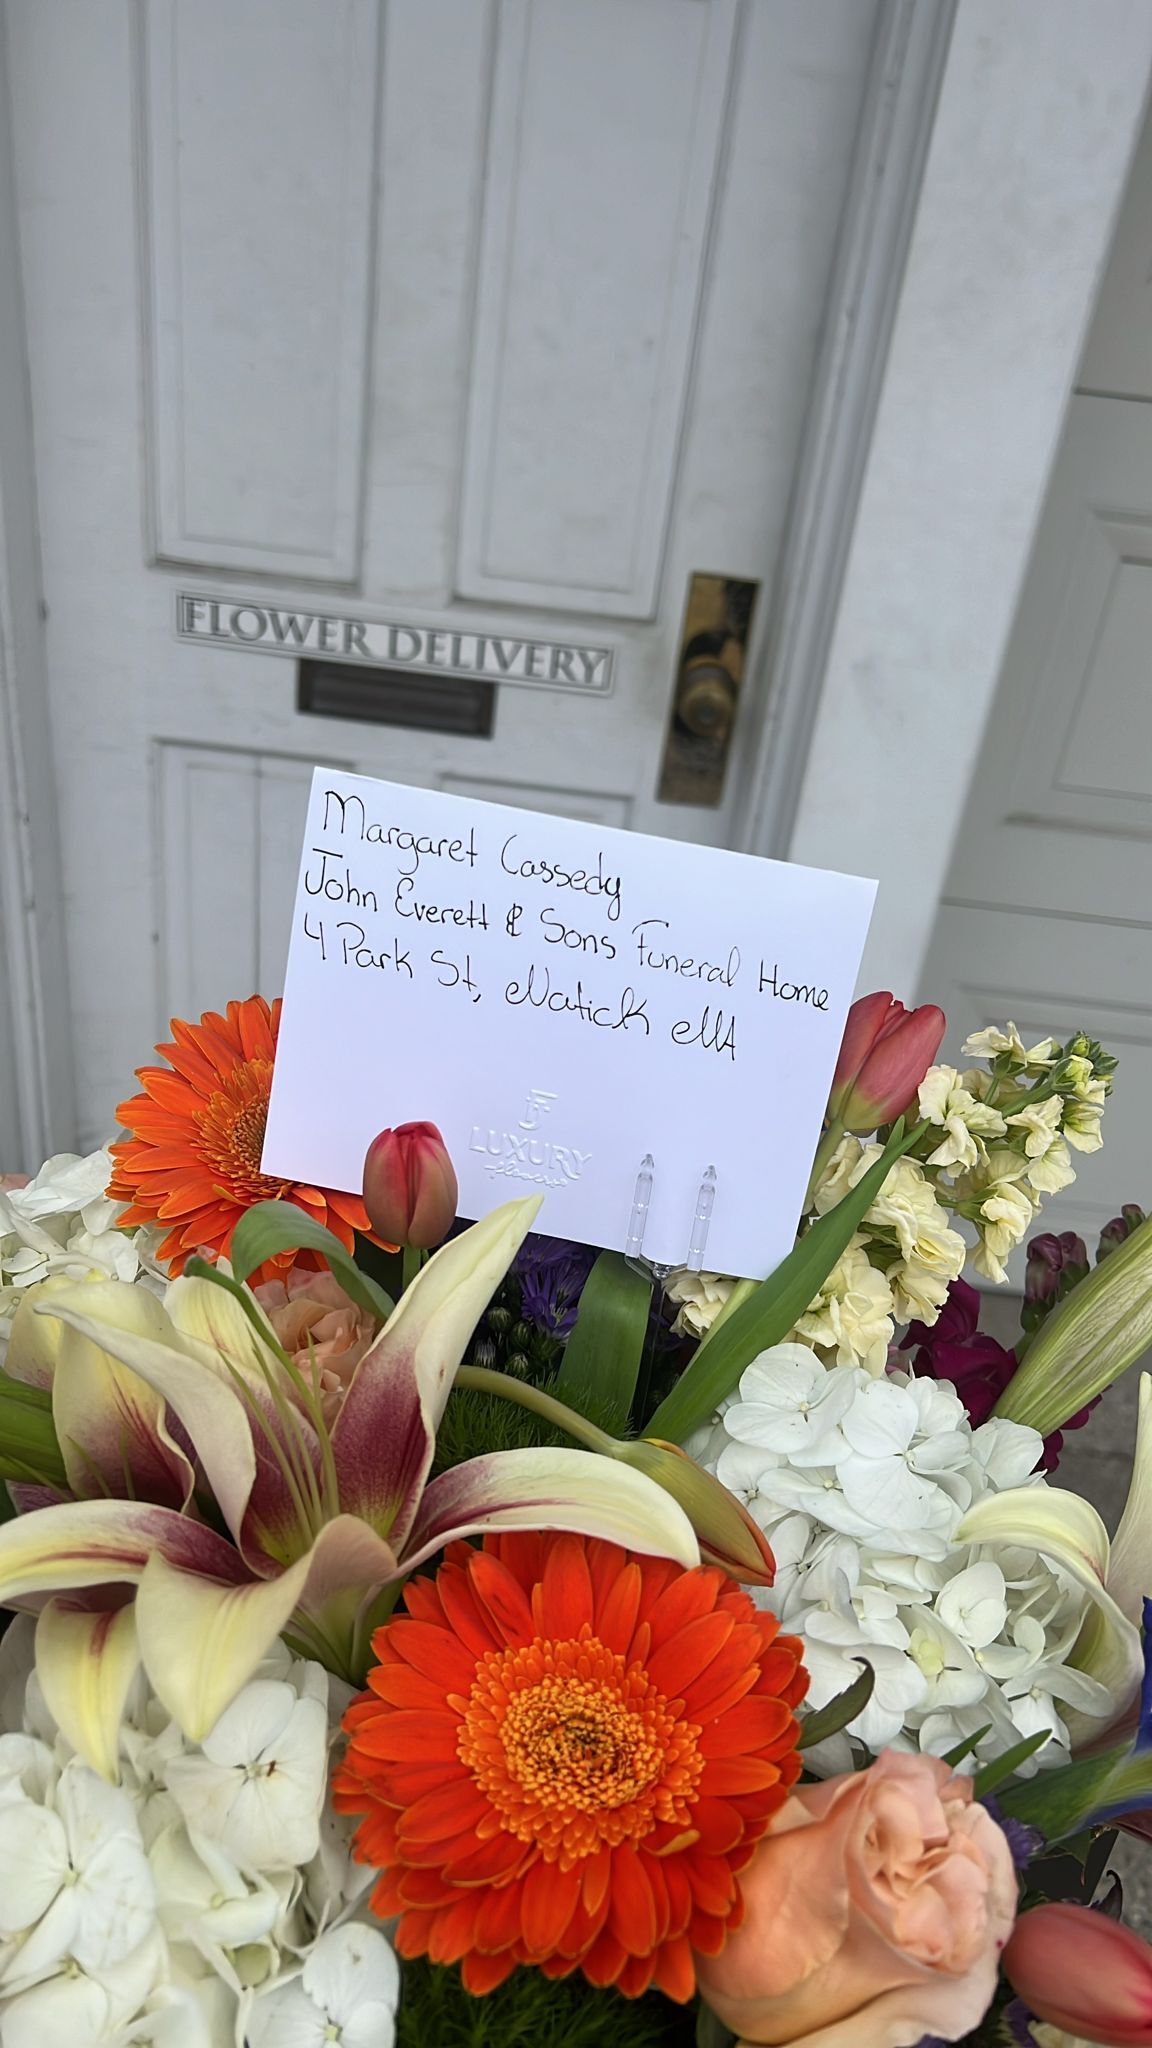 FLOWER DELIVERY
Margaret Cassedy
John Everett & Sons Funeral Home
4 Park St, Natick MA
LF
LUXURY
flowers